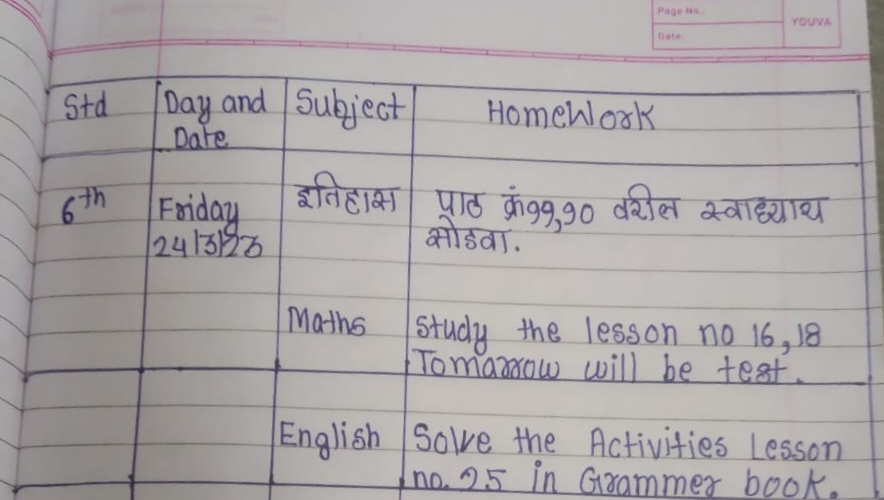 Page No.:
YOUVA
Date:
Std Day and Date Subject HomeWork
6th Friday 24/3/23 इतिहास पाठ क्रं ११,१० वरील स्वाध्याय
सोडवा.
Maths Study the lesson no 16, 18
Tomarrow will be test.
English Solve the Activities Lesson
no. 25 in Grammer book.